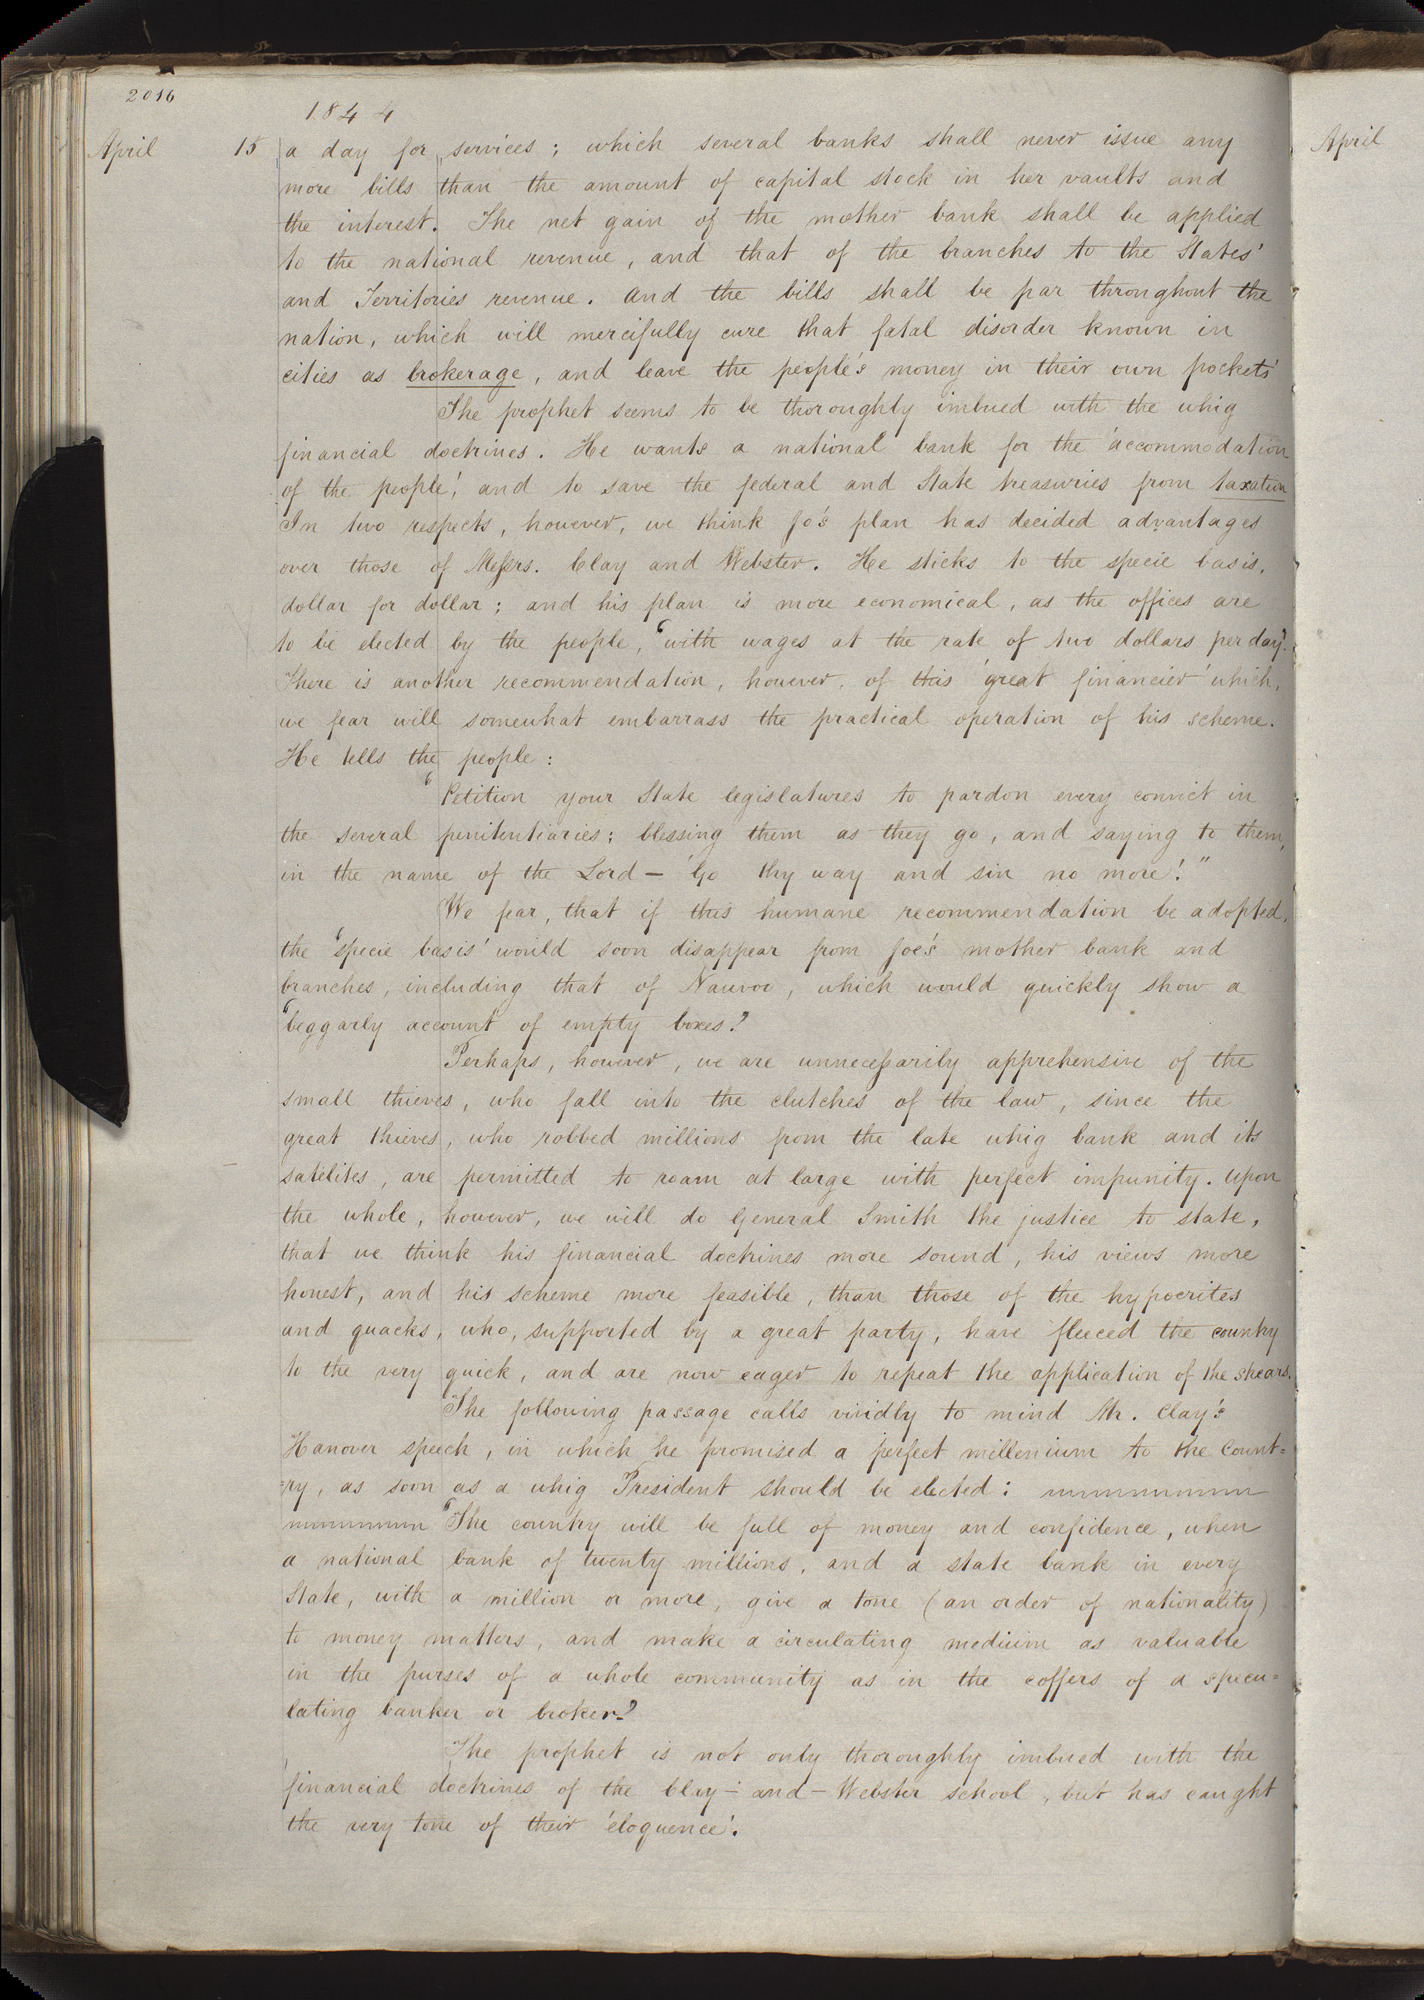 2016
1844
April 15 a day for services; which several banks shall never issue any
more bills than the amount of capital stock in her vaults and
the interest. The net gain of the mother bank shall be applied
to the national revenue, and that of the branches to the States'
and Territories revenue. And the bills shall be par throughout the
nation, which will mercifully cure that fatal disorder known in
cities as brokerage, and leave the people's money in their own pockets'
The prophet seems to be thoroughly imbued with the whig
financial doctrines. He wants a national bank for the 'accommodation
of the people', and to save the federal and State treasuries from taxation
In two respects, however, we think Jo's plan has decided advantages
over those of Messrs. Clay and Webster. He sticks to the specie basis,
dollar for dollar; and his plan is more economical, as the offices are
to be elected by the people, 'with wages at the rate of two dollars per day'.
There is another recommendation, however, of this 'great financier' which,
we fear will somewhat embarrass the practical operation of his scheme.
He tells the people:
'Petition your State legislatures to pardon every convict in
the several penitentiaries; blessing them as they go, and saying to them,
in the name of the Lord — 'Go thy way and sin no more'."
We fear, that if this humane recommendation be adopted,
the 'specie basis' would soon disappear from Joe's mother bank and
branches, including that of Nauvoo, which would quickly show a
'beggarly account of empty boxes.'
Perhaps, however, we are unnecessarily apprehensive of the
small thieves, who fall into the clutches of the law, since the
great thieves, who robbed millions from the late whig bank and its
satelites, are permitted to roam at large with perfect impunity. Upon
the whole, however, we will do General Smith the justice to state,
that we think his financial doctrines more sound, his views more
honest, and his scheme more feasible, than those of the hypocrites
and quacks, who, supported by a great party, have fleeced the country
to the very quick, and are now eager to repeat the application of the shears.
The following passage calls vividly to mind Mr. Clay's
Hanover speech, in which he promised a perfect millenium to the count=
=ry, as soon as a whig President should be elected:
'The country will be full of money and confidence, when
a national bank of twenty millions, and a state bank in every
State, with a million or more, give a tone (an order of nationality)
to money matters, and make a circulating medium as valuable
in the purses of a whole community as in the coffers of a specu=
lating banker or broker.'
The prophet is not only thoroughly imbued with the
financial doctrines of the Clay-and-Webster school, but has caught
the very tone of their 'eloquence'.
April